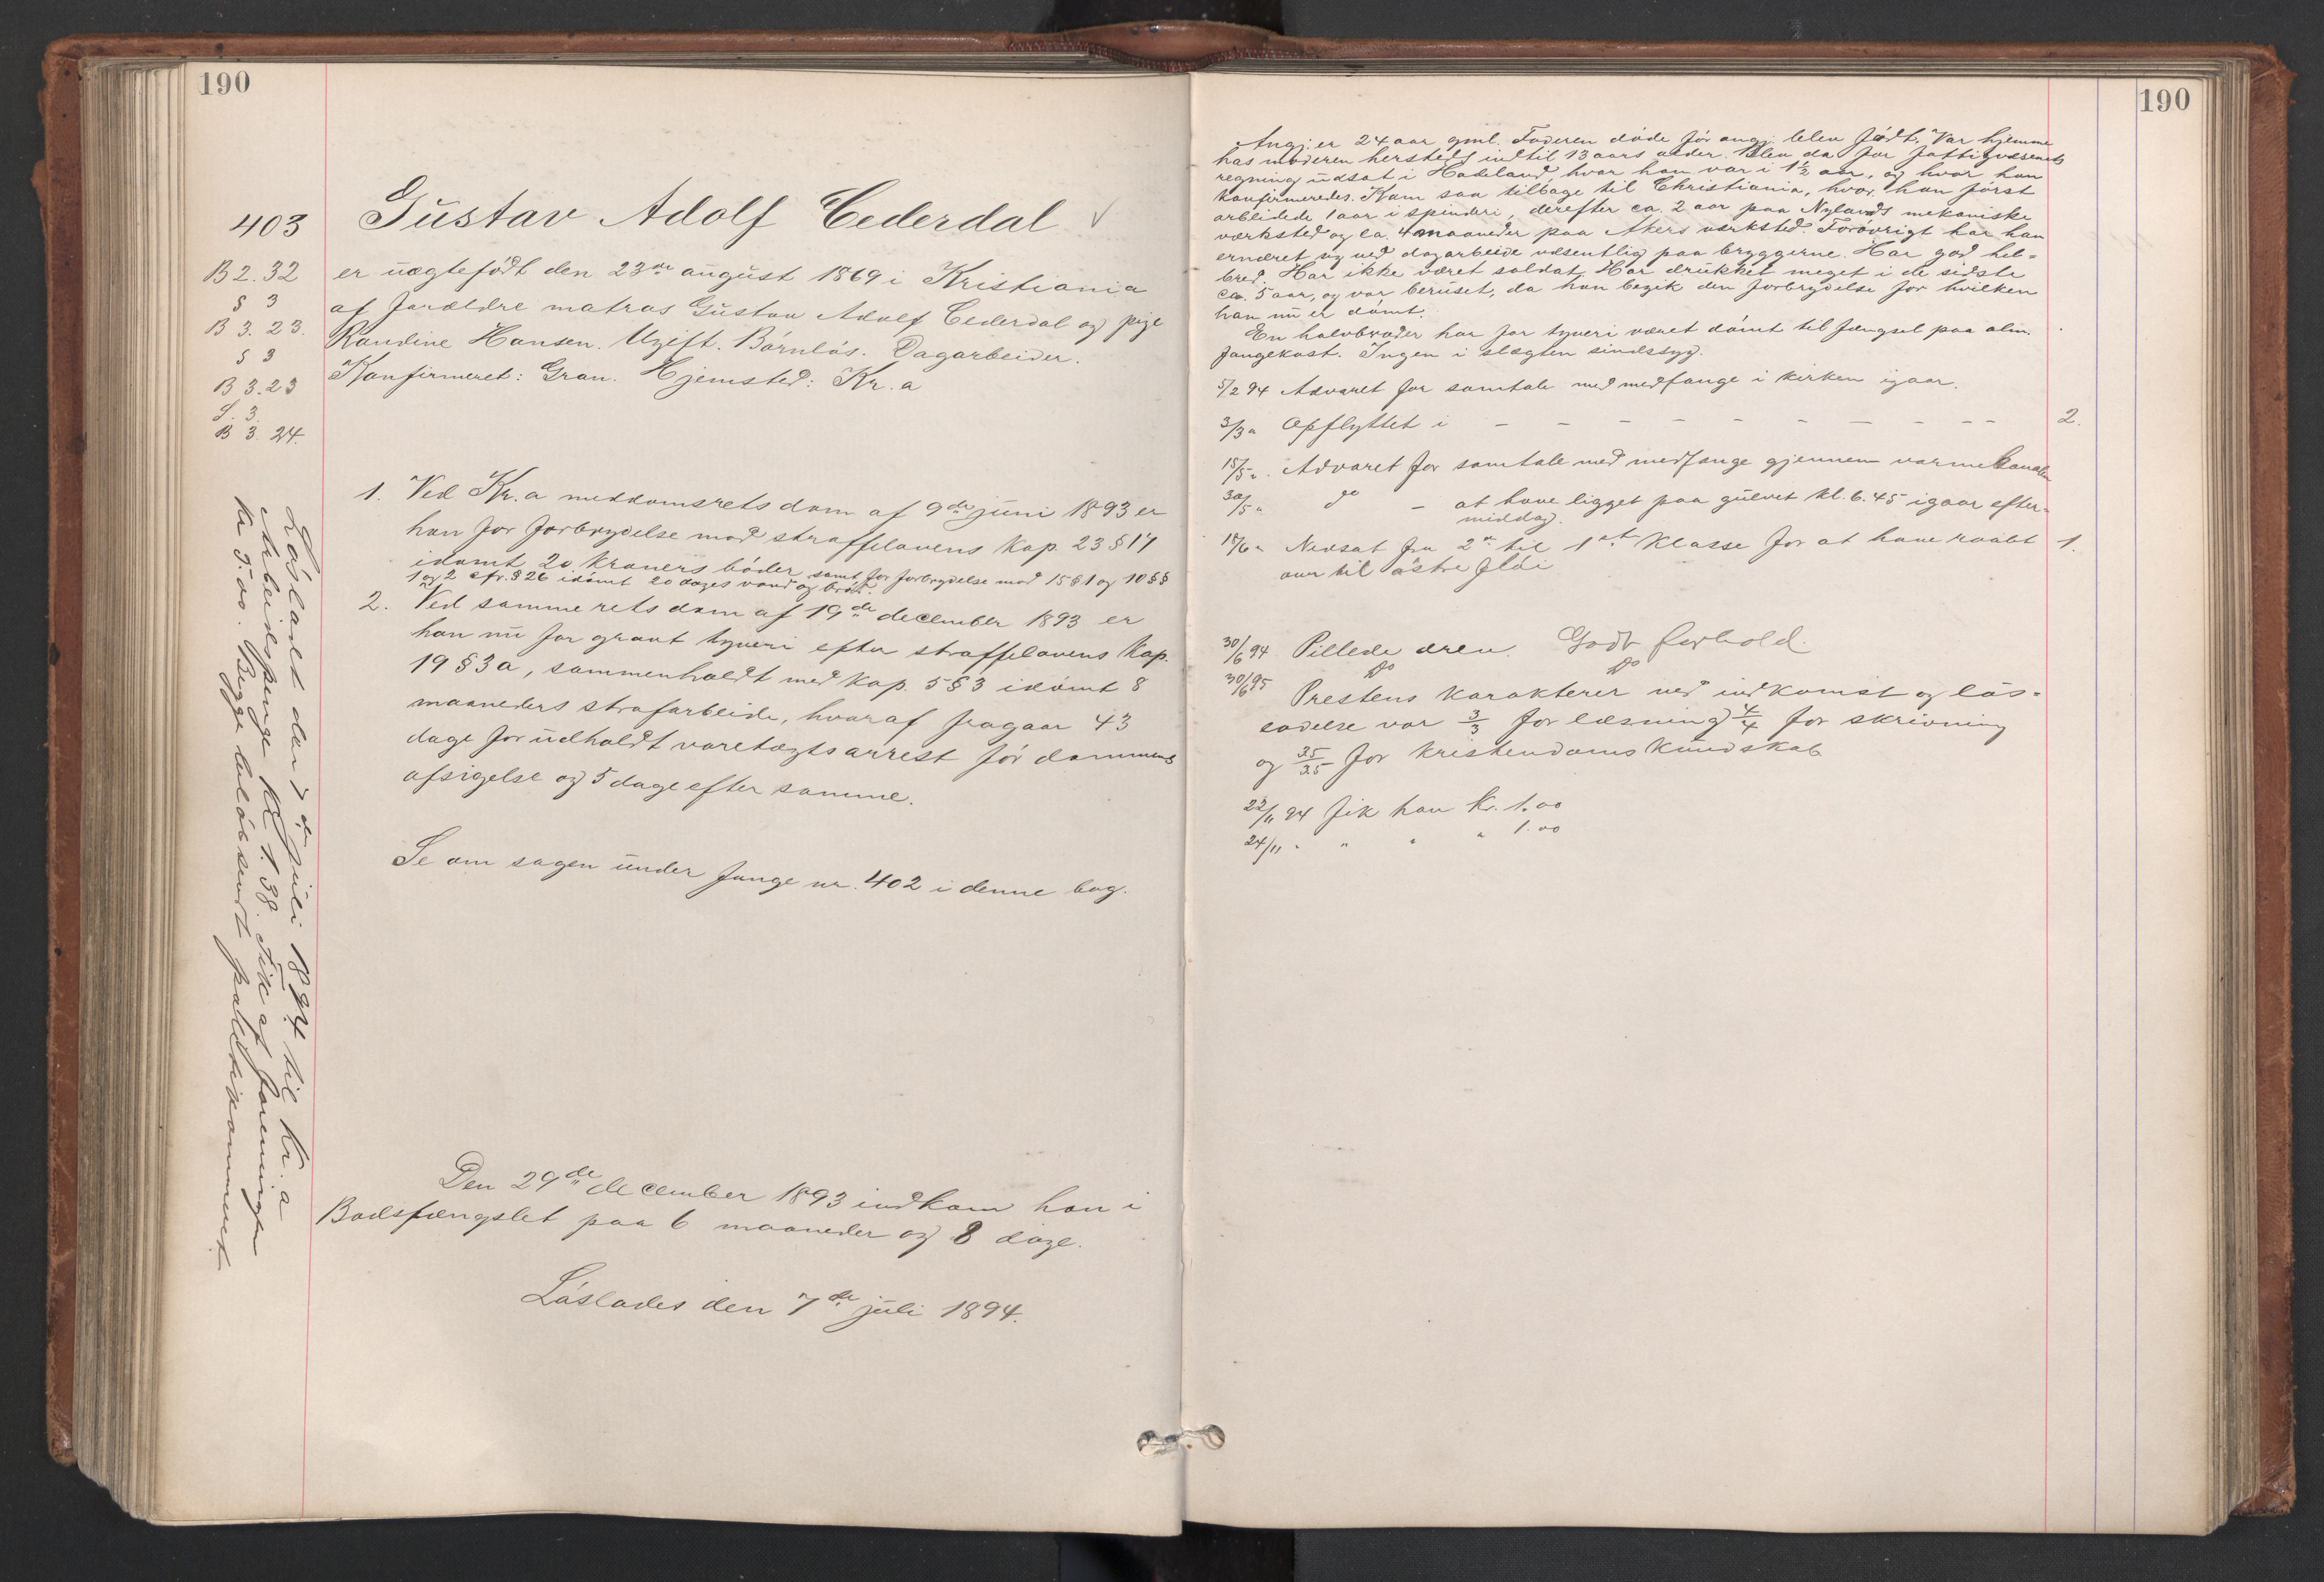 190
403
Gustav Adolf Cederdal √
B 2. 32
§ 3
B 3. 23.
§ 3
B 3. 23
S. 3.
B 3. 24.
er uægtefødt den 23de august 1869 i Kristiania
af forældre matros Gustav Adolf Cederdal og pige
Randine Hansen. Ugift. Børnløs. Dagarbeider.
Konfirmeret: Gran. Hjemsted: Kr.a
1. Ved Kr.a meddomsrets dom af 9de juni 1893 er
han for forbrydelse mod straffelovens kap. 23 § 17
idømt 20 kroners bøder samt for forbrydelse mod 15 § 1 og 10 §§
1 og 2 cfr. § 26 idømt 20 dages vand og brød.
2. Ved samme rets dom af 19de december 1893 er
han nu for grovt tyveri efter straffelovens kap.
19 § 3 a, sammenholdt med kap. 5 § 3 idømt 8
maaneders strafarbeide, hvoraf fragaar 43
dage for udholdt varetægtsarrest før dommens
afsigelse og 5 dage efter samme.
Se om sagen under fange nr. 402 i denne bog.
Den 29de december 1893 indkom han i
Bodsfængslet paa 6 maaneder og 8 dage.
Løslades den 7de juli 1894.
Løsladt den 7de juli 1894 til Kr.a
Arbeidspenge Kr. 1.38. Fik af foreningen
Kr. 3.00. Begge beløb sendt politikammeret.
190
Angj. er 24 aar gml. Faderen døde før angj. blev født. Var hjemme
hos moderen hersteds indtil 13 aars alder. Blev da for fattigvæsenets
regning udsat i Hadeland, hvor han var i 1 1/2 aar, og hvor han
konfirmeredes. Kom saa tilbage til Christiania, hvor han først
arbeidede 1 aar i spinderi, derefter ca. 2 aar paa Nylands mekaniske
værksted og ca. 4 maaneder paa Akers værksted. Forøvrigt har han
ernæret sig ved dagarbeide væsentlig paa bryggerne. Har god hel-
bred. Har ikke været soldat. Har drukket meget i de sidste
ca. 5 aar, og var beruset, da han begik den forbrydelse for hvilken
han nu er dømt.
En halvbroder har for tyveri været dømt til fængsel paa alm.
fangekost. Ingen i slægten sindssyg.
5/2 94 Advaret for samtale med medfange i kirken igaar.
3/3 " Opflyttet i – – – – – – – – – 2.
15/5 ". Advaret for samtale med medfange gjennem varmekanalen
30/5 " do – at have ligget paa gulvet kl. 6.45 igaar efter-
middag.
18/6 " Nedsat fra 2n til 1st klasse for at have raabt 1.
over til østre fløi
30/6 94 Pillede drev. Godt forhold.
30/6 95 do do
Prestens karakterer ved indkomst og løs-
ladelse var 3/3 for læsning 4/4 for skrivning
og 35/35 for kristendomskundskab
22/11 94 fik han Kr. 1.00
24/11 " " " " 1.00